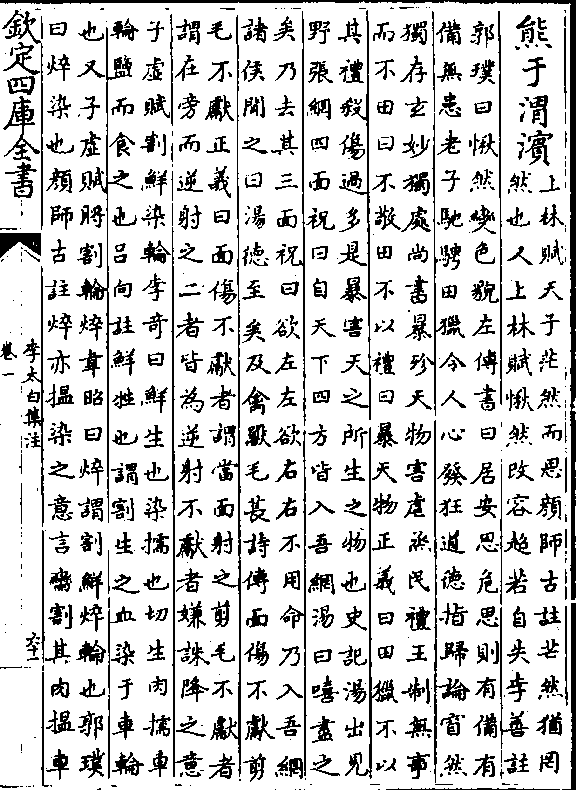 熊于渭濱
上林賦天子茫然而思顔師古註芒然猶罔
然也又上林賦愀然改容超若自失李善註
郭璞曰愀然變色貌左傳書曰居安思危思則有備有
備無患老子馳騁田獵令人心發狂道德指歸論窅然
獨存玄妙獨處尚書暴殄天物害虐烝民禮王制無事
而不田曰不敬田不以禮曰暴天物正義曰田獵不以
其禮殺傷過多是暴害天之所生之物也史記湯出見
野張網四面祝曰自天下四方皆入吾網湯曰嘻盡之
矣乃去其三面祝曰欲左左欲右右不用命乃入吾網
諸侯聞之曰湯德至矣及禽獸毛萇詩傳面傷不獻剪
毛不獻正義曰面傷不獻者謂當面射之剪毛不獻者
謂在旁而逆射之二者皆為逆射不獻者嫌誅降之意
子虛賦割鮮染輪李奇曰鮮生也染擩也切生肉擩車
輪鹽而食之也吕向註鮮牲也謂割生之血染于車輪
也又子虛賦脟割輪焠韋昭曰焠謂割鮮焠輪也郭璞
曰焠染也顔師古註焠亦搵染之意言臠割其肉搵車
欽定四庫全書
李太白集注
卷一
六十一